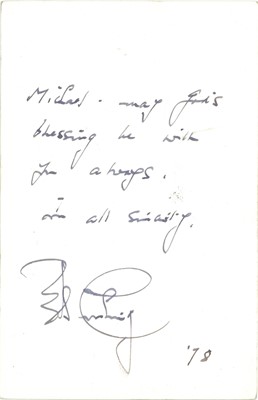 Michael - may God's
blessing be with
you always.
in all sincerity,
'78